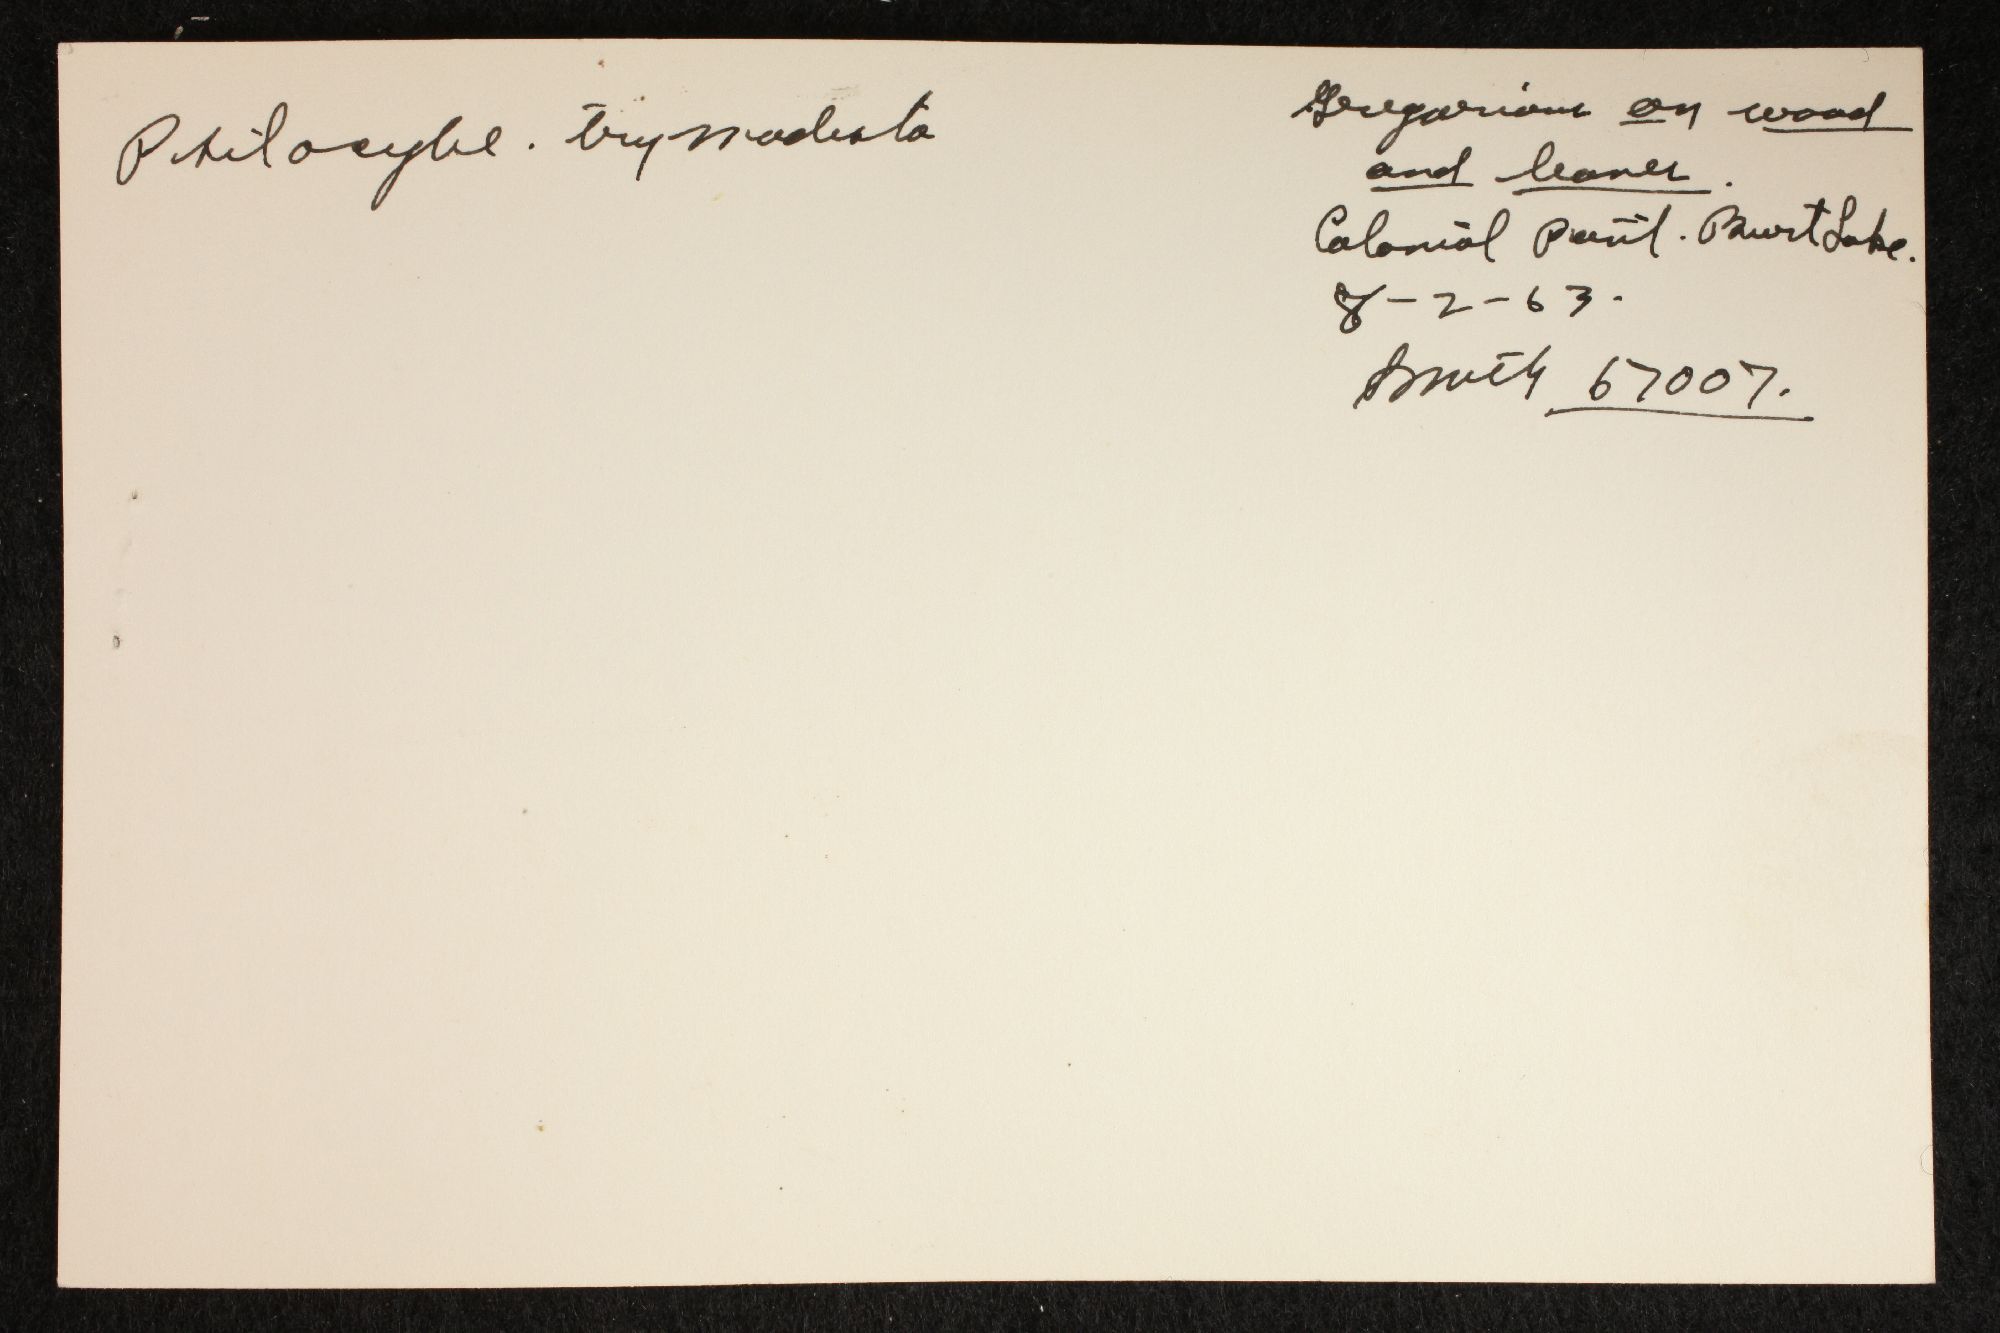 Psilocybe. try modesta
Gregarious on wood
and leaves.
Colonial Point. Burt Lake.
8-2-63.
Smith 67007.